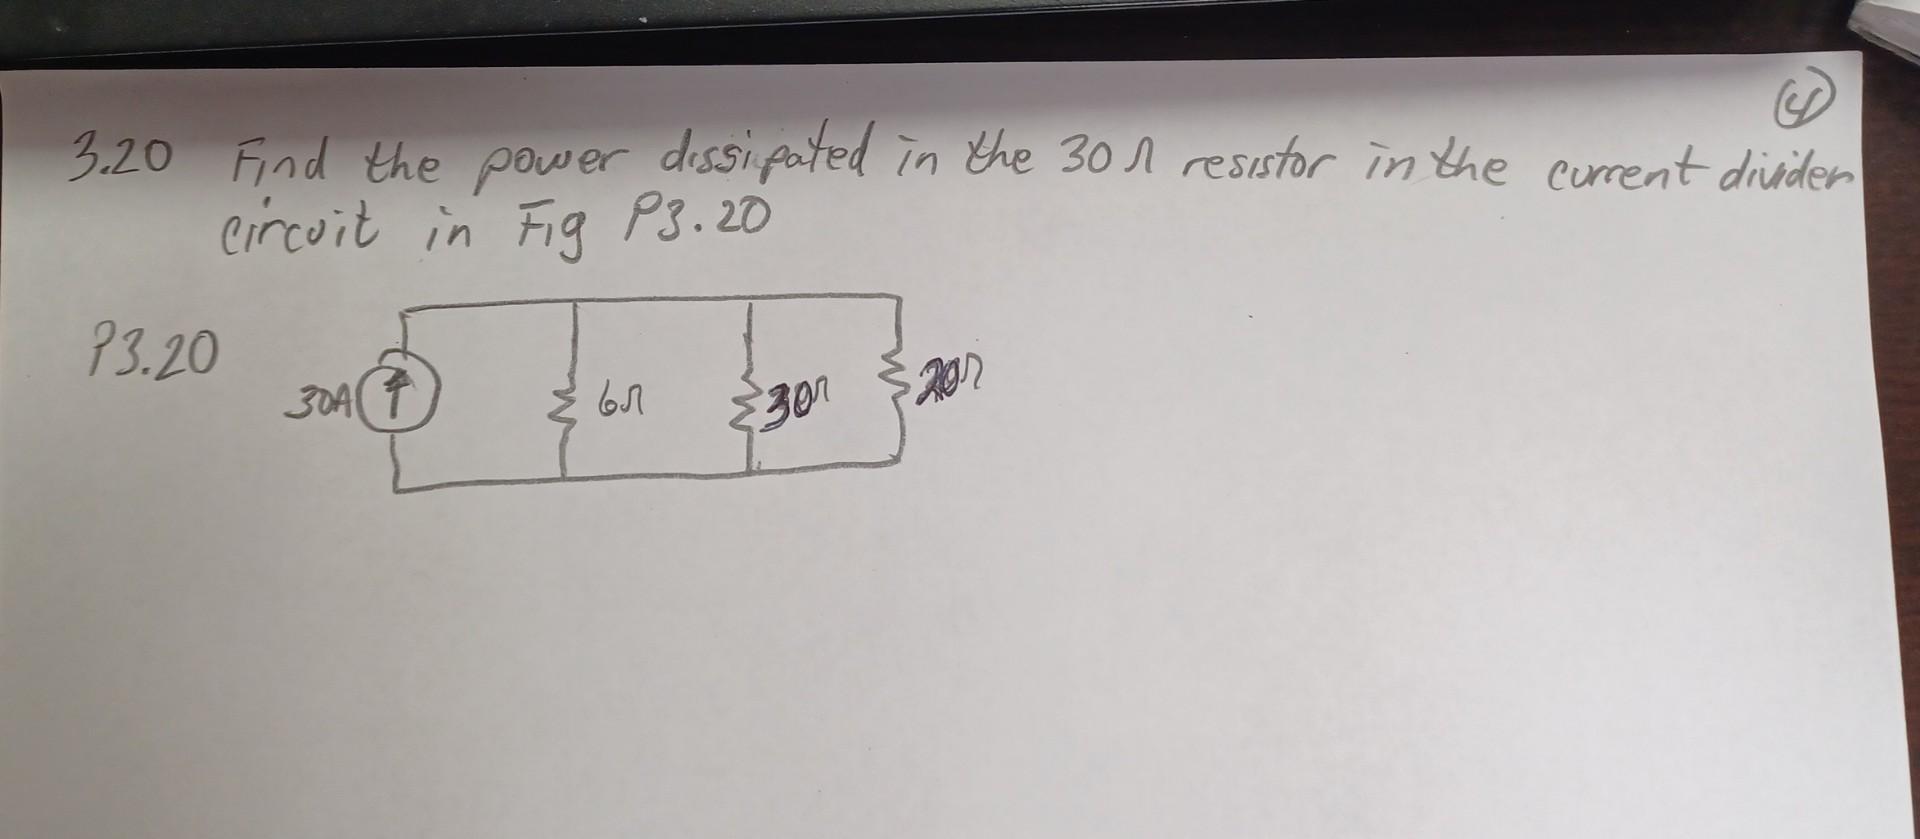 ④
3.20 Find the power dissipated in the 30Ω resistor in the current divider
circuit in Fig P3.20
P3.20
30A
6Ω
30Ω
20Ω